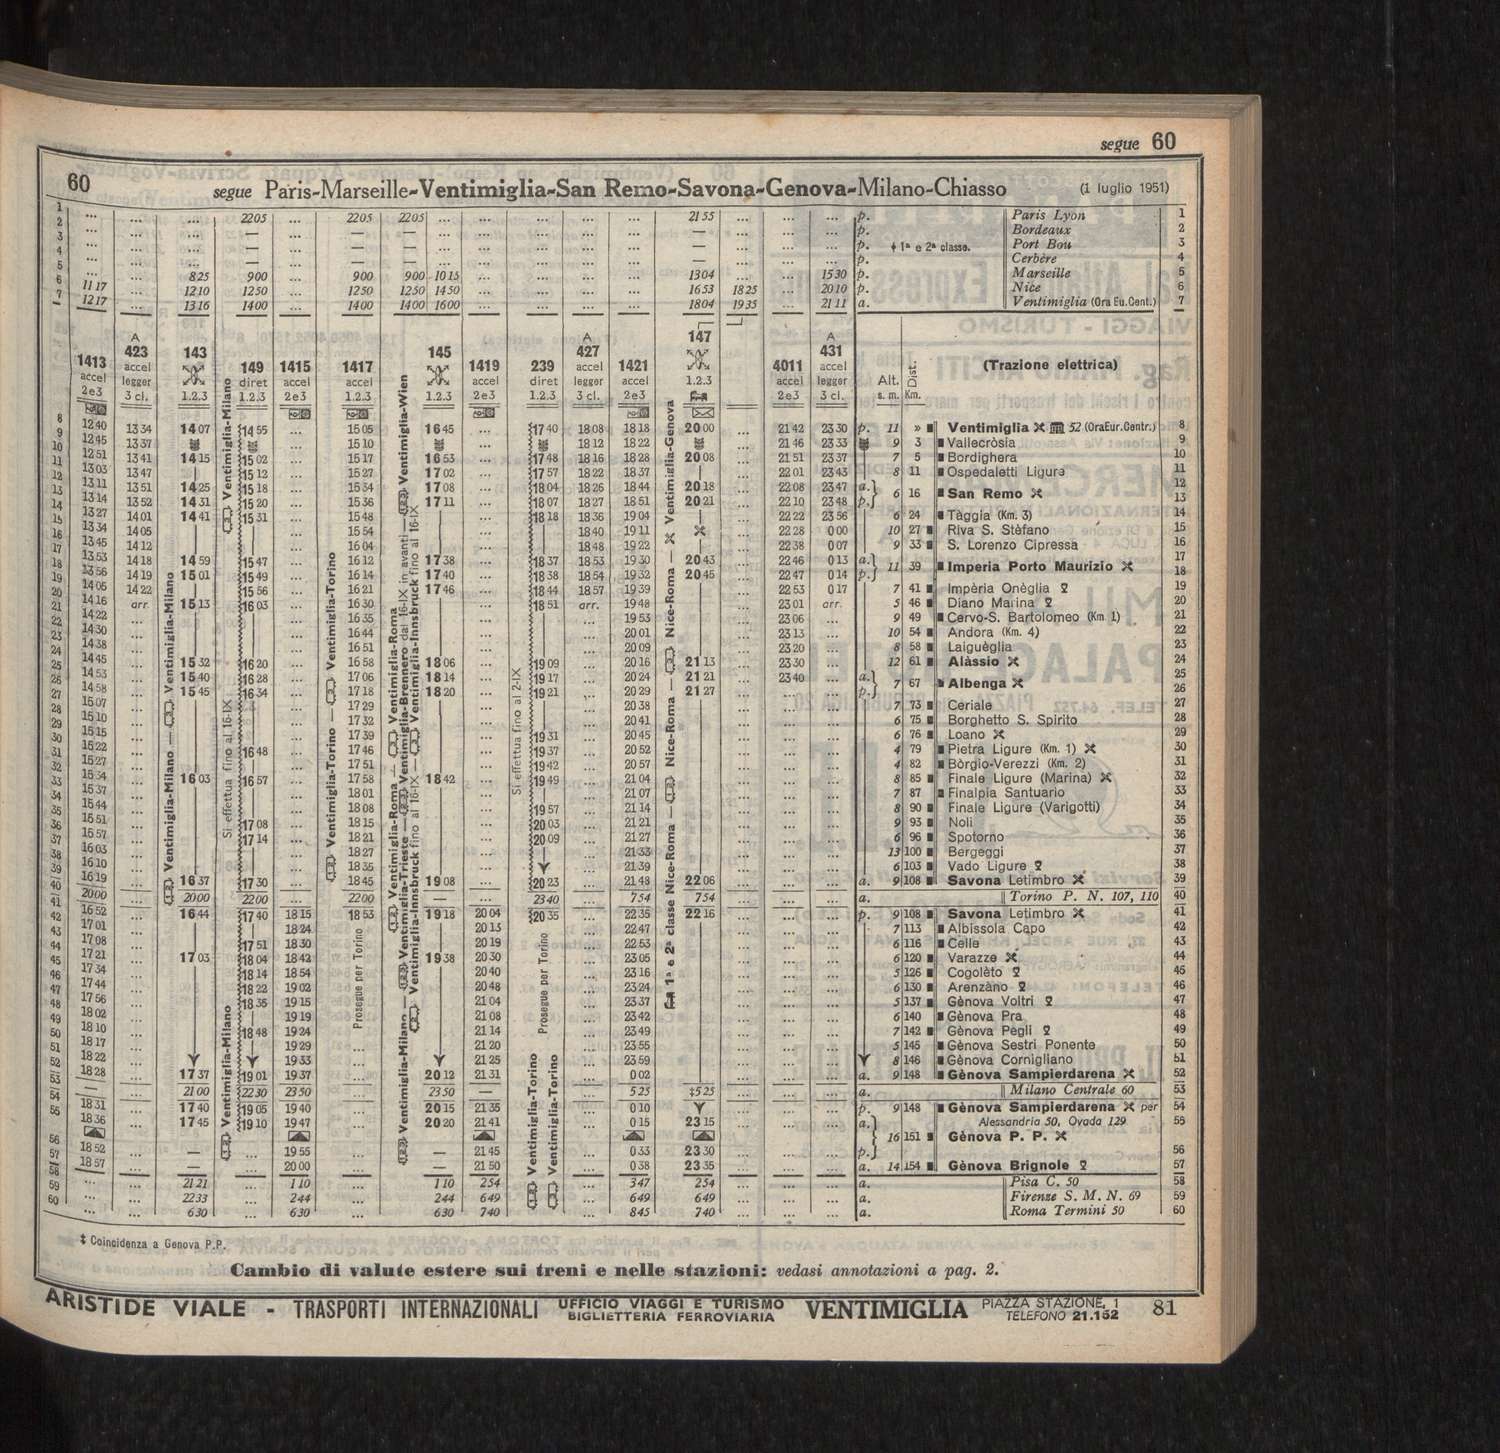 segue 60
60 segue Paris-Marseille-Ventimiglia-San Remo-Savona-Genova-Milano-Chiasso (1 luglio 1951)
1 ... ... ... 2205 ... 2205 2205 ... ... ... ... ... 2155 ... ... ... p. Paris Lyon 1
2 p. Bordeaux 2
3 p. 1ª e 2ª classe. Port Bou 3
4 p. Cerbère 4
5 ... ... 825 900 ... 900 900 1015 ... ... ... ... 1304 ... ... 1530 p. Marseille 5
6 1117 ... 1210 1250 ... 1250 1250 1450 ... ... ... ... 1653 1825 ... 2010 p. Nice 6
7 1217 ... 1316 1400 ... 1400 1400 1600 ... ... ... ... 1804 1935 ... 2111 a. Ventimiglia (Ora Eu.Cent.) 7
1413 accel 2e3
A 423 accel legger 3 cl.
143 1.2.3
149 diret 1.2.3
1415 accel 2e3
1417 accel 1.2.3
145 1.2.3
1419 accel 2e3
239 diret 1.2.3
A 427 accel legger 3 cl.
1421 accel 2e3
147 1.2.3
4011 accel 2e3
A 431 accel legger 3 cl.
Alt. s. m.
Dist. Km.
(Trazione elettrica)
8 1240 1334 1407 1455 ... 1505 1645 ... 1740 1808 1818 2000 2142 2330 p. 11 » Ventimiglia 52 (OraEur.Centr.) 8
9 1245 1337 ... 1510 ... 1812 1822 2146 2333 9 3 Vallecròsia 9
10 1251 1341 1415 1502 ... 1517 1653 ... 1748 1816 1828 2008 2151 2337 7 5 Bordighera 10
11 1303 1347 | 1512 ... 1527 1702 ... 1757 1822 1837 | 2201 2343 8 11 Ospedaletti Ligure 11
12 1311 1351 1425 1518 ... 1534 1708 ... 1804 1826 1844 2018 2208 2347 a. 6 16 San Remo 12
13 1314 1352 1431 1520 ... 1536 1711 ... 1807 1827 1851 2021 2210 2348 p. 13
14 1327 1401 1441 1531 ... 1548 | ... 1818 1836 1904 | 2222 2356 6 24 Tàggia (Km. 3) 14
15 1334 1405 ... 1554 ... 1840 1911 2228 000 10 27 Riva S. Stèfano 15
16 1345 1412 ... 1604 ... 1848 1922 2238 007 9 33 S. Lorenzo Cipressa 16
17 1353 1418 1459 1547 ... 1612 1738 ... 1837 1853 1930 2043 2246 013 a. 11 39 Imperia Porto Maurizio 17
18 1356 1419 1501 1549 ... 1614 1740 ... 1838 1854 1932 2045 2247 014 p. 18
19 1405 1422 | 1556 ... 1621 1746 ... 1844 1857 1939 | 2253 017 7 41 Impèria Onèglia 19
20 1416 arr. 1513 1603 ... 1630 | ... 1851 arr. 1948 | 2301 arr. 5 46 Diano Marina 20
21 1422 ... 1635 ... 1953 2306 ... 9 49 Cervo-S. Bartolomeo (Km 1) 21
22 1430 ... 1644 ... 2001 2313 ... 10 54 Andora (Km. 4) 22
23 1438 ... 1651 ... 2009 2320 ... 8 58 Laiguèglia 23
24 1445 ... 1532 1620 ... 1658 1806 ... 1909 ... 2016 2113 2330 ... 12 61 Alàssio 24
25 1453 ... 1540 1628 ... 1706 1814 ... 1917 ... 2024 2121 2340 ... a. 7 67 Albenga 25
26 1458 ... 1545 1634 ... 1718 1820 ... 1921 ... 2029 2127 ... ... p. 26
27 1507 ... 1729 ... 2038 ... 7 73 Ceriale 27
28 1510 ... 1732 ... 2041 ... 6 75 Borghetto S. Spirito 28
29 1515 ... 1739 ... 1931 ... 2045 ... 6 76 Loano 29
30 1522 ... 1648 ... 1746 ... 1937 ... 2052 ... 4 79 Pietra Ligure (Km. 1) 30
31 1527 ... 1751 ... 1942 ... 2057 ... 4 82 Bòrgio-Verezzi (Km. 2) 31
32 1534 ... 1603 1657 ... 1758 1842 ... 1949 ... 2104 ... 8 85 Finale Ligure (Marina) 32
33 1537 ... 1801 ... 2107 ... 7 87 Finalpia Santuario 33
34 1544 ... 1808 ... 1957 ... 2114 ... 8 90 Finale Ligure (Varigotti) 34
35 1551 ... 1708 ... 1815 ... 2003 ... 2121 ... 9 93 Noli 35
36 1557 ... 1714 ... 1821 ... 2009 ... 2127 ... 6 96 Spotorno 36
37 1603 ... 1827 ... 2133 ... 13 100 Bergeggi 37
38 1610 ... 1835 ... 2139 ... 6 103 Vado Ligure 38
39 1619 ... 1637 1730 ... 1845 1908 ... 2023 ... 2148 2206 ... ... a. 9 108 Savona Letimbro 39
40 2000 ... 2000 2200 ... 2200 — ... 2340 ... 754 754 ... ... a. Torino P. N. 107, 110 40
41 1652 ... 1644 1740 1815 1853 1918 2004 2035 ... 2235 2216 ... ... p. 9 108 Savona Letimbro 41
42 1701 ... 1824 2013 ... 2247 ... 7 113 Albissola Capo 42
43 1708 ... 1751 1830 2019 ... 2253 ... 6 116 Celle 43
44 1721 ... 1703 1804 1842 1938 2030 ... 2305 ... 6 120 Varazze 44
45 1734 ... 1814 1854 2040 ... 2316 ... 5 126 Cogolèto 45
46 1744 ... 1822 1902 2048 ... 2324 ... 6 130 Arenzàno 46
47 1756 ... 1835 1915 2104 ... 2337 ... 5 137 Gènova Voltri 47
48 1802 ... 1919 2108 ... 2342 ... 6 140 Gènova Pra 48
49 1810 ... 1848 1924 2114 ... 2349 ... 7 142 Gènova Pegli 49
50 1817 ... 1929 2120 ... 2355 ... 5 145 Gènova Sestri Ponente 50
51 1822 ... 1933 2125 ... 2359 ... 8 146 Gènova Cornigliano 51
52 1828 ... 1737 1901 1937 ... 2012 2131 ... 002 ... a. 9 148 Gènova Sampierdarena 52
53 — ... 2100 2230 2350 ... 2350 — ... 525 ‡525 ... a. Milano Centrale 60 53
54 1831 ... 1740 1905 1940 ... 2015 2135 ... 010 ... p. 9 148 Gènova Sampierdarena per 54
55 1836 ... 1745 1910 1947 ... 2020 2141 ... 015 2315 ... a. Alessandria 30, Ovada 129 55
16 151 Gènova P. P.
56 1852 ... — ... 1955 ... — 2145 ... 033 2330 ... p. 56
57 1857 ... — ... 2000 ... — 2150 ... 038 2335 ... a. 14 154 Gènova Brignole 57
58 ... ... 2121 ... 110 ... 110 254 ... 347 254 ... a. Pisa C. 50 58
59 ... ... 2233 ... 244 ... 244 649 ... 649 649 ... a. Firenze S. M. N. 69 59
60 ... ... 630 ... 630 ... 630 740 ... 845 740 ... a. Roma Termini 50 60
Ventimiglia-Milano — Ventimiglia-Milano
Ventimiglia-Milano
Si effettua fino al 16-IX
Ventimiglia-Milano
Ventimiglia-Torino — Ventimiglia-Torino
Prosegue per Torino
Ventimiglia-Roma — Ventimiglia-Roma
Ventimiglia-Milano — Ventimiglia-Trieste — Ventimiglia-Brennero dal 16-IX in avanti — Ventimiglia-Wien
Ventimiglia-Innsbruck fino al 16-IX — Ventimiglia-Innsbruck fino al 16-IX
Si effettua fino al 2-IX
Prosegue per Torino
Ventimiglia-Torino
Ventimiglia-Torino
1ª e 2ª classe Nice-Roma — Nice-Roma — Nice-Roma — Ventimiglia-Genova
‡ Coincidenza a Genova P.P.
Cambio di valute estere sui treni e nelle stazioni: vedasi annotazioni a pag. 2.
ARISTIDE VIALE - TRASPORTI INTERNAZIONALI UFFICIO VIAGGI E TURISMO BIGLIETTERIA FERROVIARIA VENTIMIGLIA PIAZZA STAZIONE, 1 TELEFONO 21.152 81